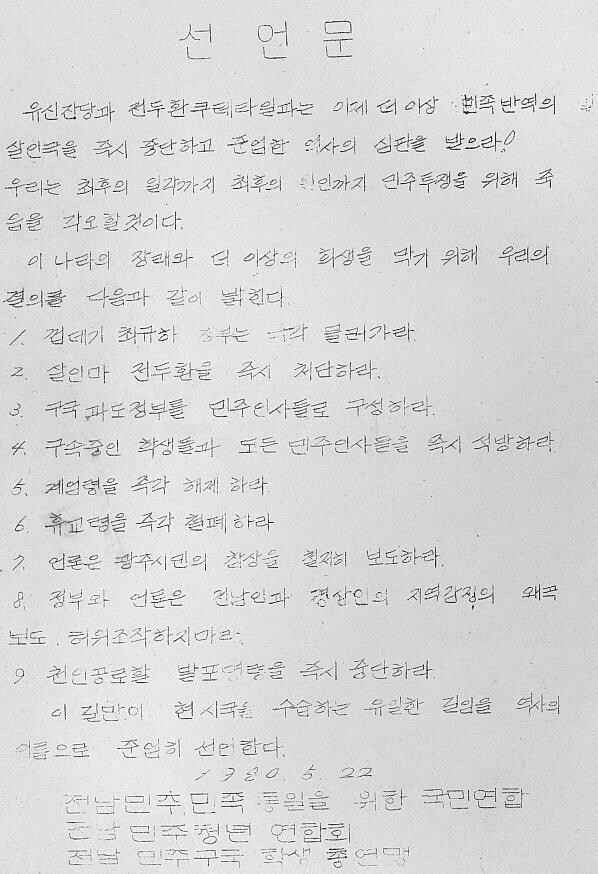 선 언 문
유신잔당과 전두환쿠테타일파는 이제 더 이상 민족반역의
살인극을 즉시 중단하고 준엄한 역사의 심판을 받으라!
우리는 최후의 일각까지 최후의 일인까지 민주투쟁을 위해 죽
음을 각오할것이다.
이 나라의 장래와 더 이상의 희생을 막기 위해 우리의
결의를 다음과 같이 밝힌다.
1. 껍데기 최규하 정부는 즉각 물러가라.
2. 살인마 전두환을 즉시 처단하라.
3. 구국 과도정부를 민주인사들로 구성하라.
4. 구속중인 학생들과 모든 민주인사들을 즉시 석방하라.
5. 계엄령을 즉각 해제 하라
6. 휴교령을 즉각 철폐하라
7. 언론은 광주시민의 참상을 철저히 보도하라.
8. 정부와 언론은 전남인과 경상인의 지역감정의 왜곡
보도. 허위조작하지마라.
9. 천인공로할 발포명령을 즉시 중단하라.
이 길만이 현시국을 수습하는 유일한 길임을 역사의
이름으로 준엄히 선언한다.
1980. 5. 22
전남민주,민족 통일을 위한 국민연합
전남 민주청년 연합회
전남 민주구국 학생 총연맹